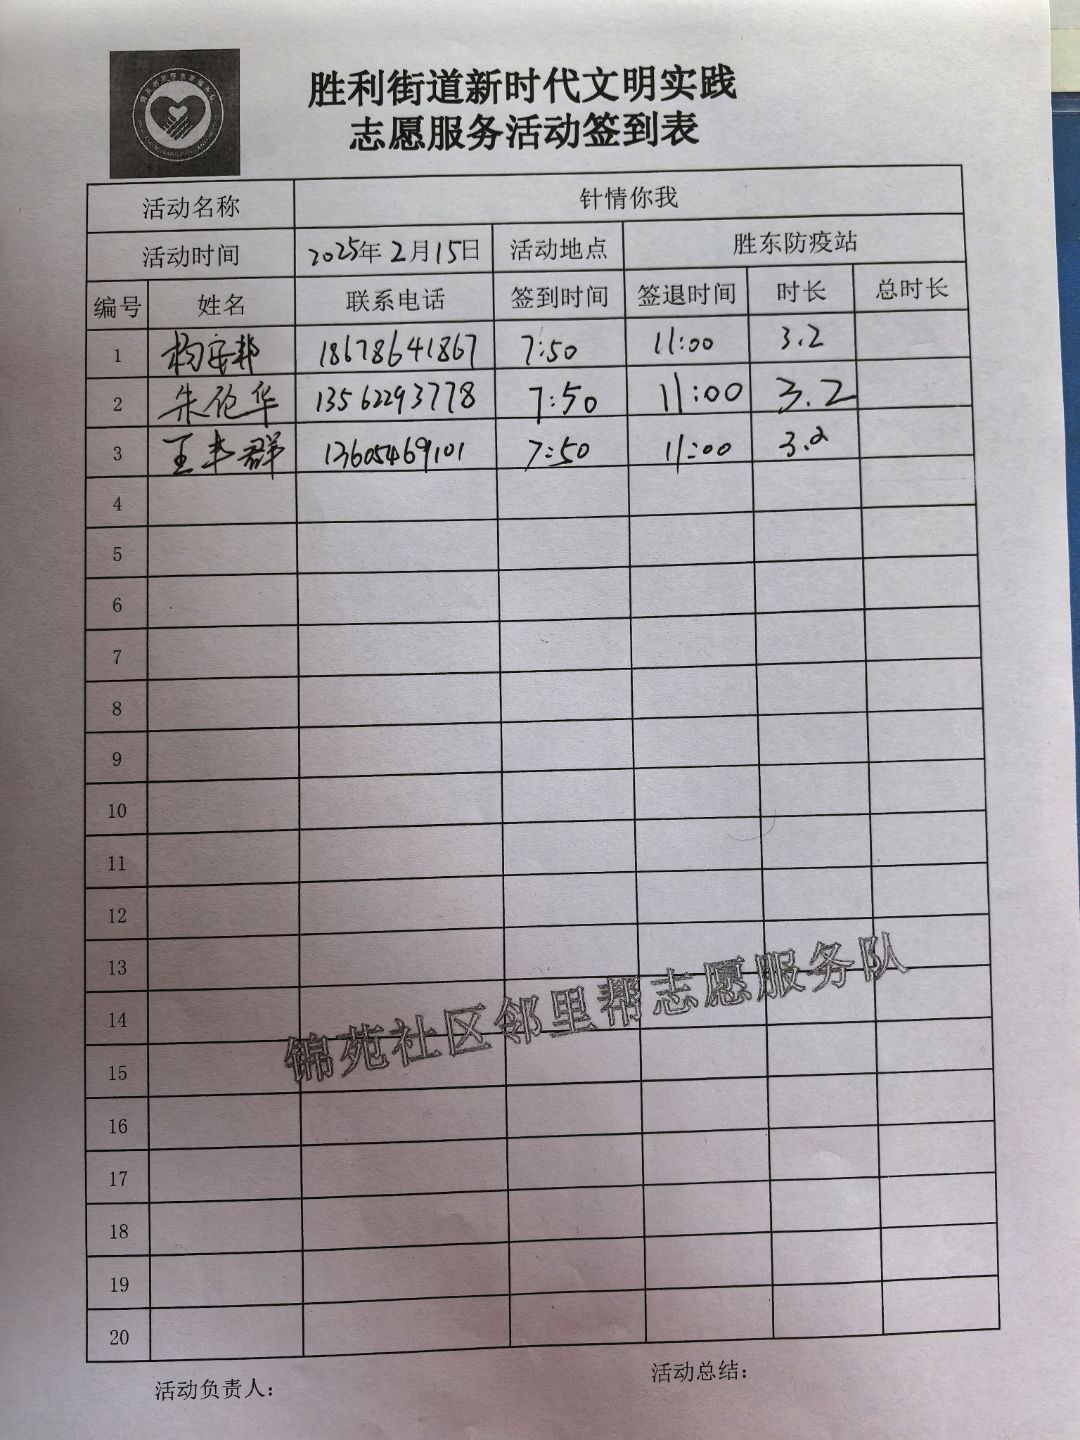 胜利街道新时代文明实践
志愿服务活动签到表
活动名称 针情你我
活动时间 2025年2月15日 活动地点 胜东防疫站
编号 姓名 联系电话 签到时间 签退时间 时长 总时长
1 杨安邦 18678641867 7:50 11:00 3.2
2 朱伦华 13562293778 7:50 11:00 3.2
3 王丰群 13605469101 7:50 11:00 3.2
4
5
6
7
8
9
10
11
12
13
14
锦苑社区邻里帮志愿服务队
15
16
17
18
19
20
活动负责人: 活动总结: